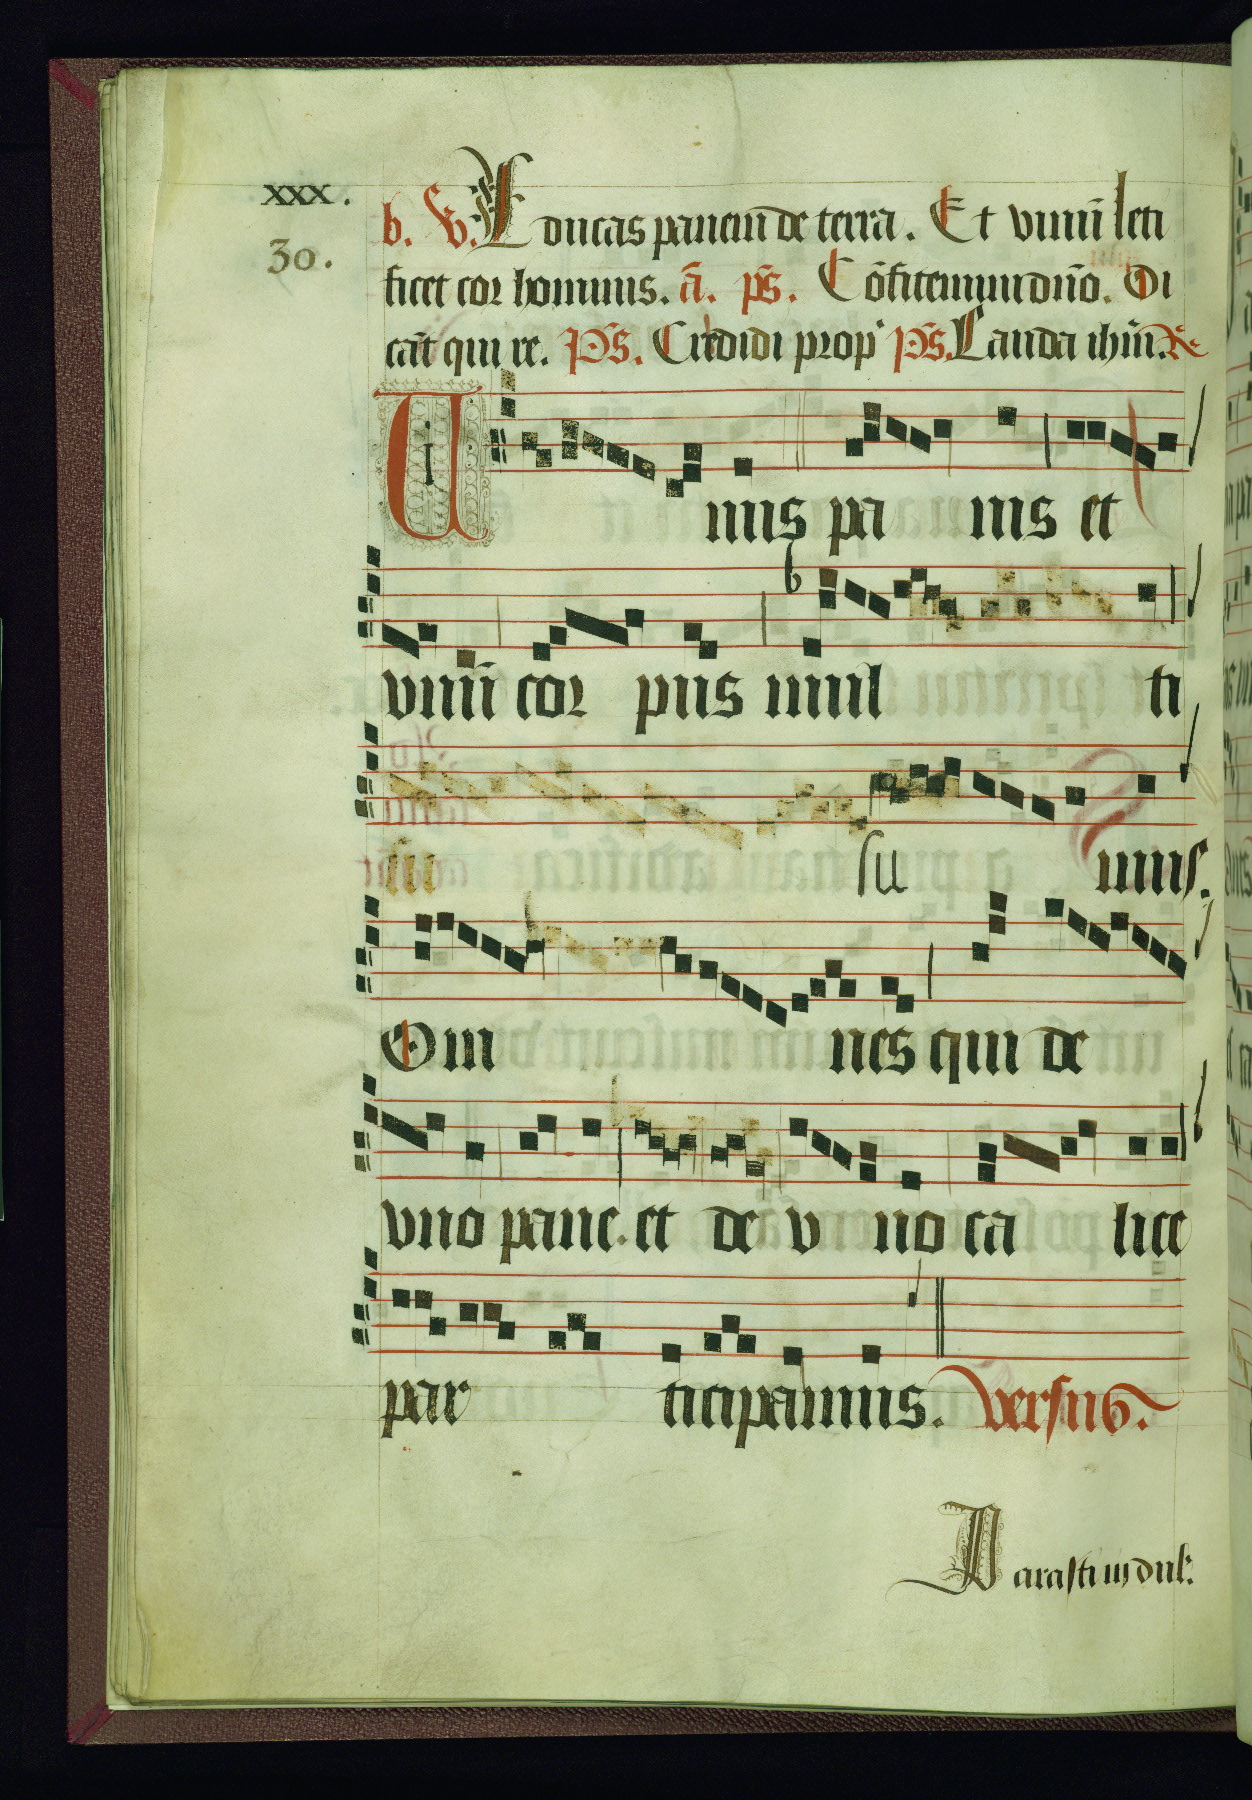 xxx.
30.
b. V. Educas panem de terra. Et vinū leti
ficet cor hominis. ā. ps̄. Cōfitemini dn̄o. Di
cāt qui re. Ps̄. Credidi prop' Ps̄. Lauda ihrm̄. R
Unus pa nis et
vnū cor pus mul ti
su mus.
Om nes qui de
vno pane. et de v no ca lice
par ticipamus. versus.
Parasti in dul: